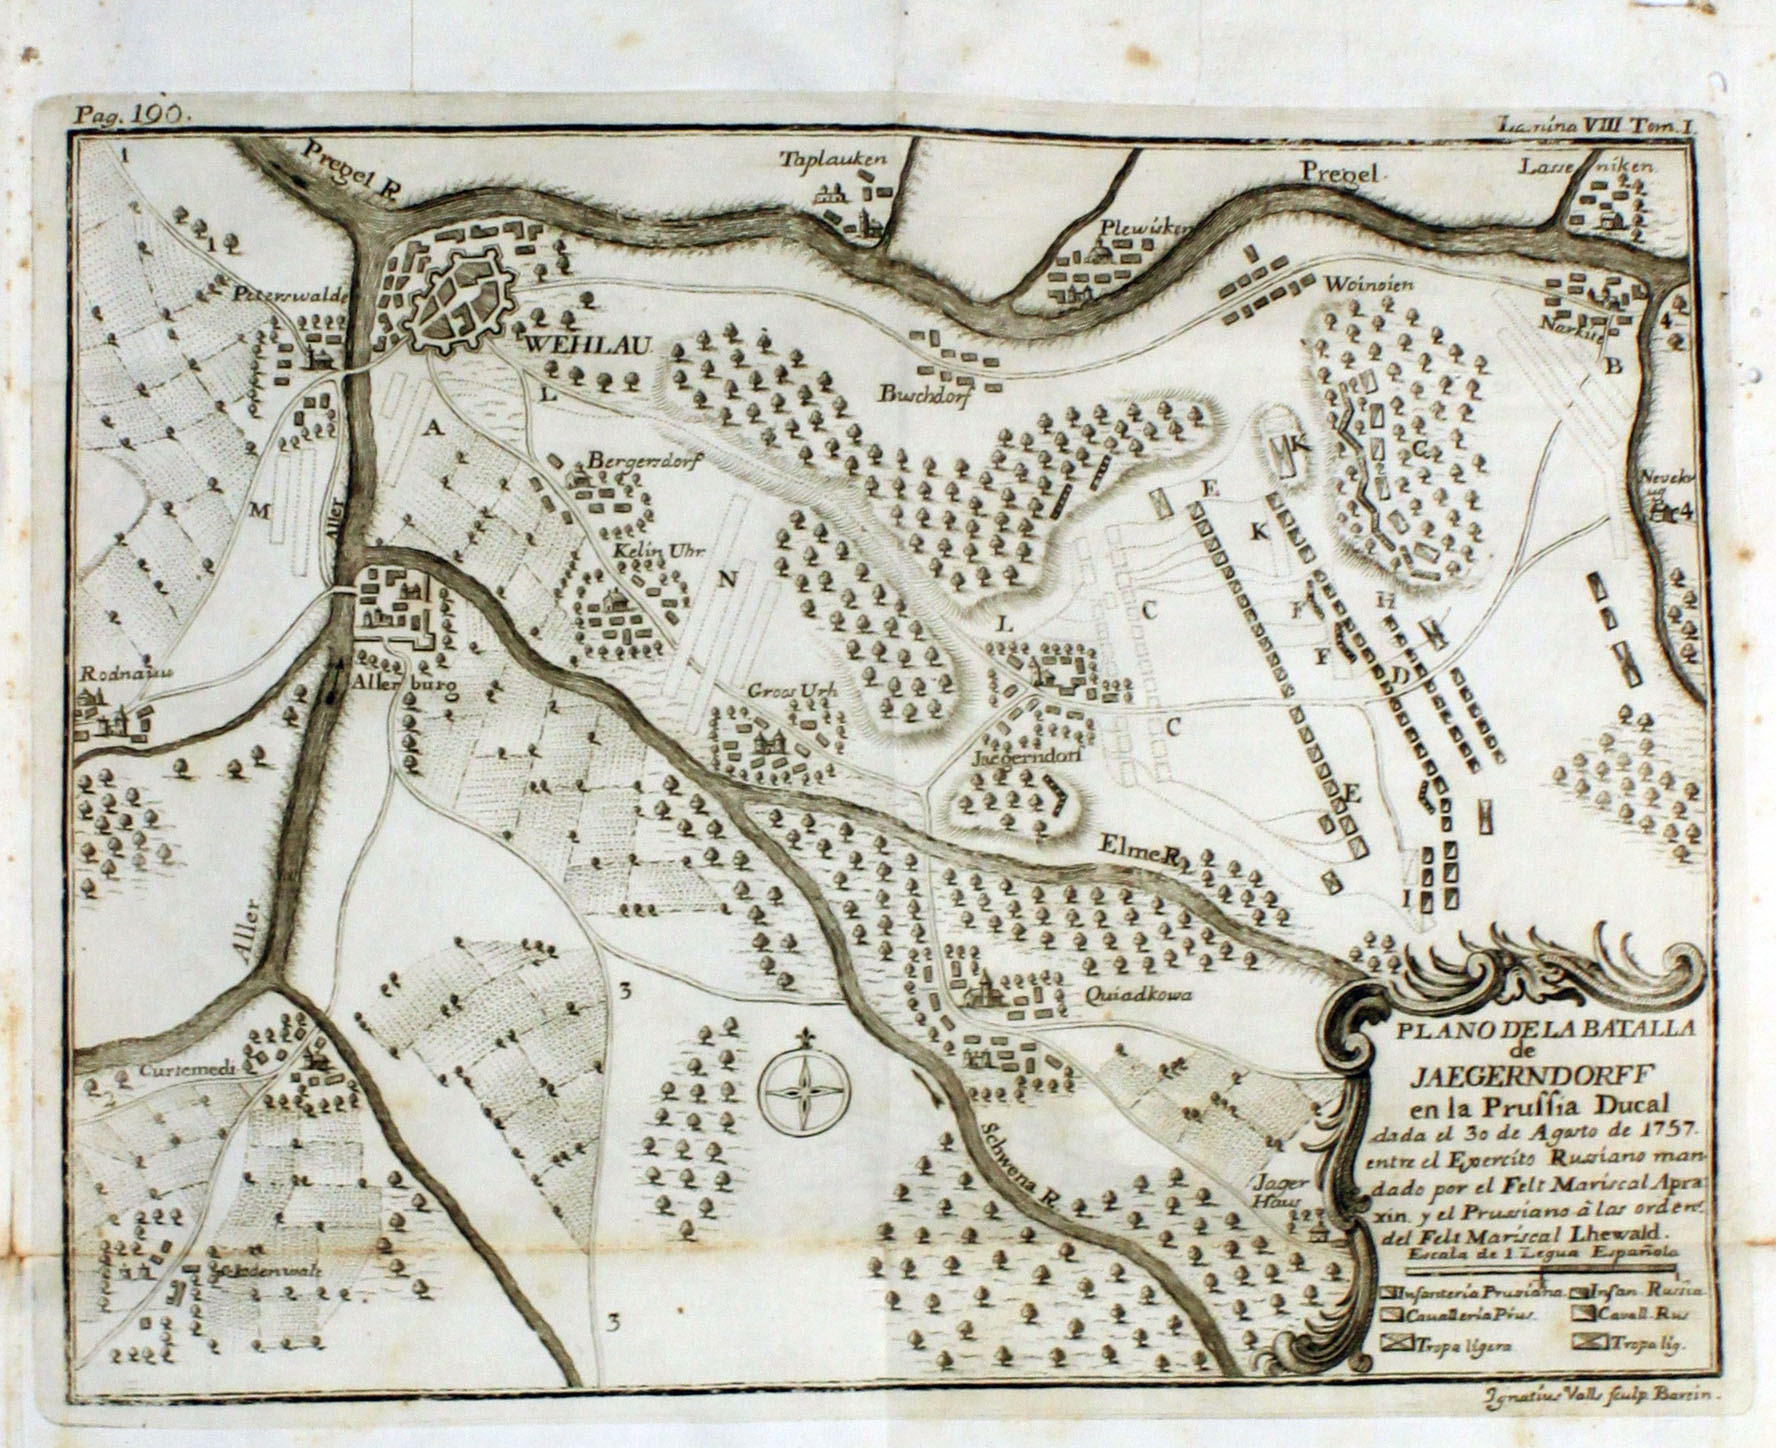 Pag. 190.
Lamina VIII Tom. I.
1
Pregel R.
Taplauken
Pregel.
Lasseniken
1
Plewisken
Peterswalde
Woinoien
Narkite
4
WEHLAU.
B
Buschdorf
L
A
K
G
Bergersdorf
M
Aller
E
4
K
Kelin Uhr
N
H
C
F
L
F
Rodnauu
Allenburg
D
Groos Urh
C
Jaegerndorf
E
Elme R.
I
Aller
3
Quiadkowa
Curtemedi
Schwena R.
Jager
Haus
3
PLANO DE LA BATALLA
de
JAEGERNDORFF
en la Pruſſia Ducal
dada el 30 de Agosto de 1757.
entre el Exercito Russiano man
dado por el Felt Mariscal Apra
xin. y el Prussiano à las orden.s
del Felt Mariscal Lhewald.
Escala de 1 Legua Española
Infanteria Prusiana. Infan. Russia
Cavalleria Prus. Cavall. Rus
Tropa ligera Tropa lig.
Ignatius Valls sculp. Barcin.